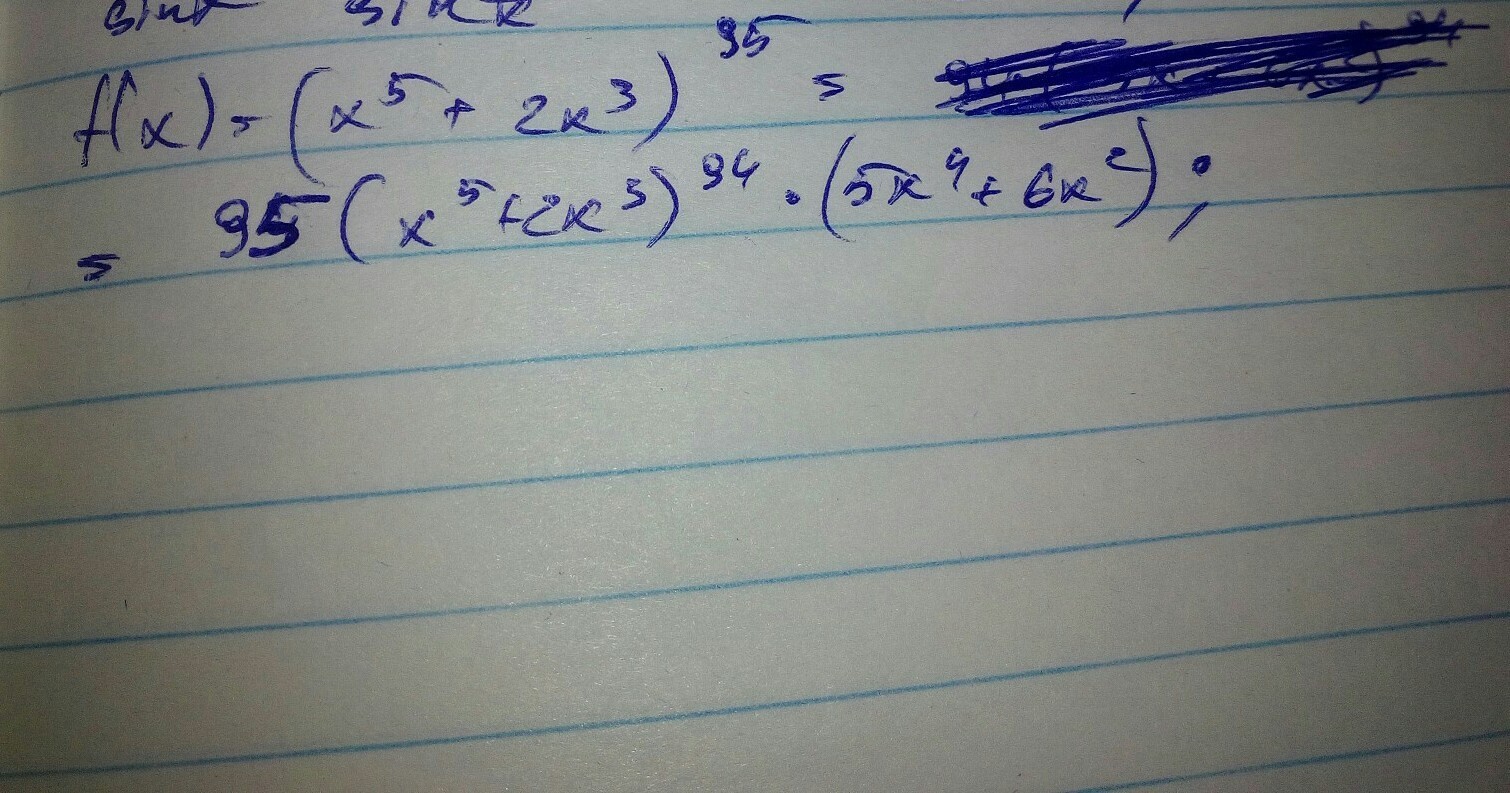 f(x) = (x⁵ + 2x³)⁹⁵ =
= 95(x⁵+2x³)⁹⁴ · (5x⁴ + 6x²);